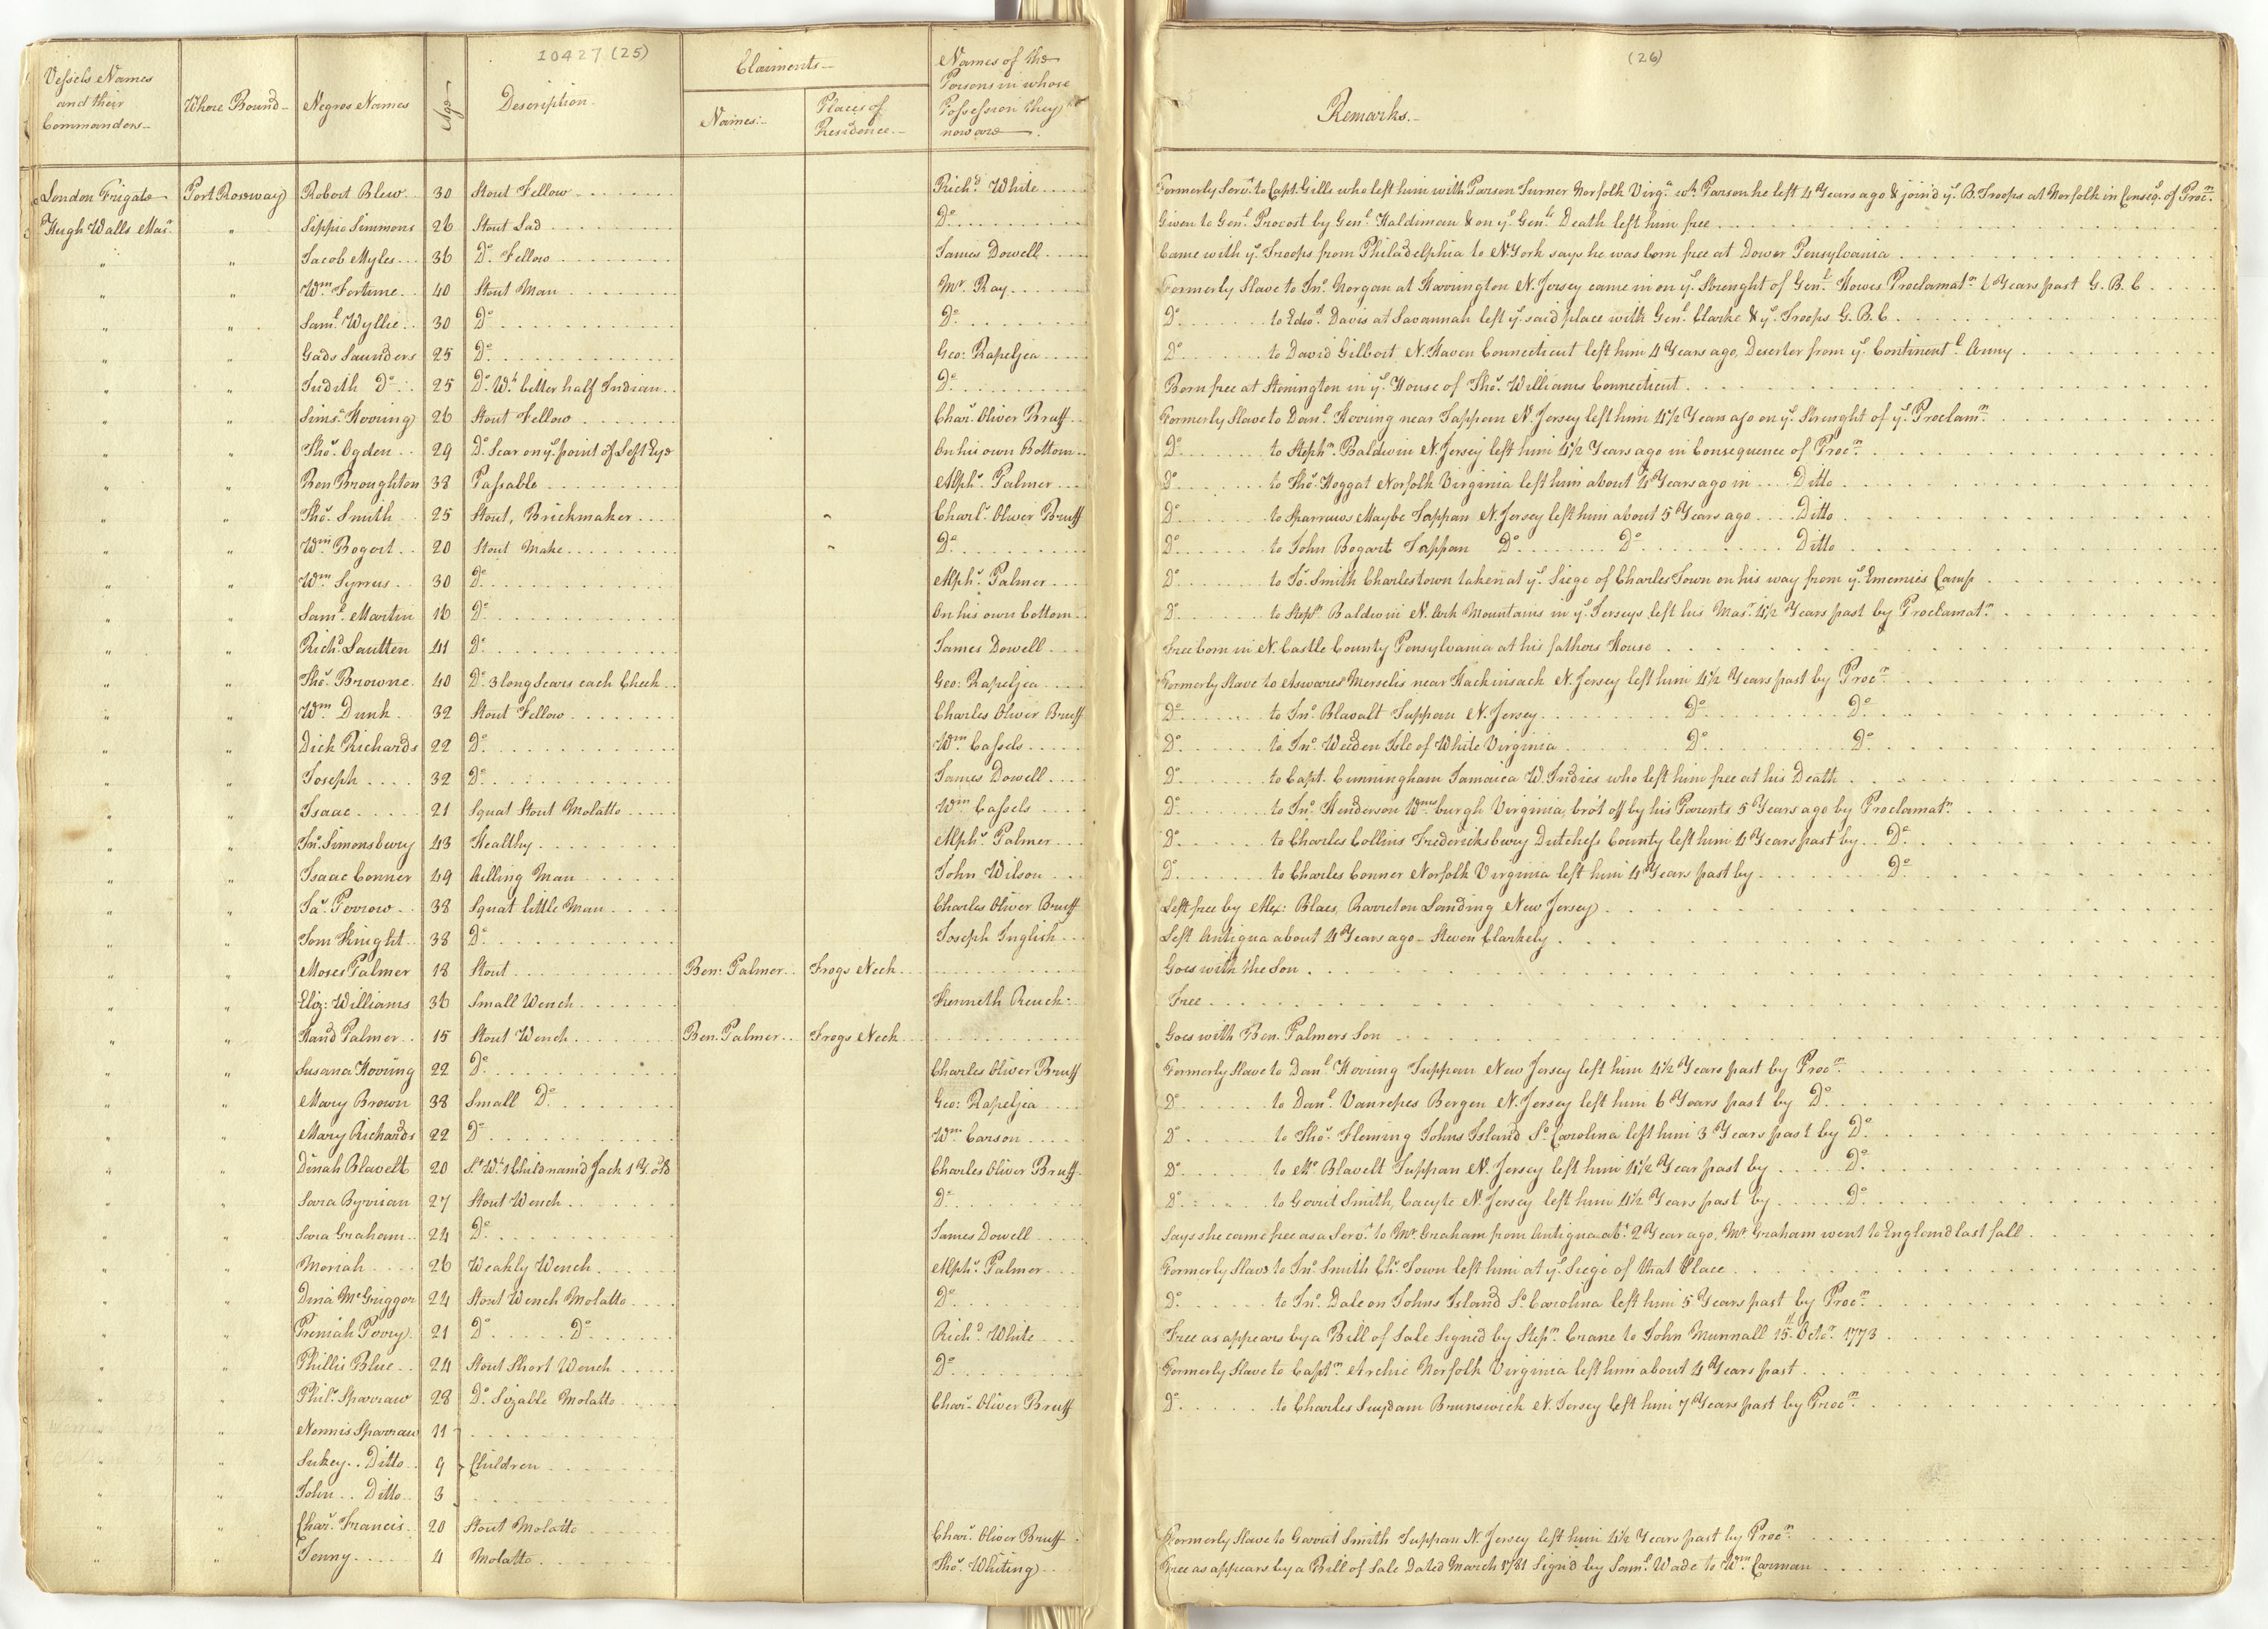 10427 (25)
(26)
Vessels Names and their Commanders Where Bound Negros Names Age Description Claiments Names Places of Residence Names of the Persons in whose Possession they now are Remarks
London Frigate Port Roseway Robert Blew 30 Stout Fellow Richd. White Formerly Servt. to Capt. Gille who left him with Parson Turner Norfolk Virga. wh. Parson he left 4 Years ago & joind ye. B. Troops at Norfolk in Conseqe. of Procm.
Hugh Walls Masr. " Sippio Simmons 26 Stout Lad Do. Given to Genl. Provost by Genl. Haldiman & on ye. Genls. Death left him free
" " Jacob Myles 36 Do. Fellow James Dowell Came with ye. Troops from Philadelphia to N York says he was born free at Dower Pensylvania
" " Wm. Fortune 40 Stout Man Mr. Ray Formerly Slave to Jno. Morgan at Harrington N. Jersey came in on ye. Strenght of Genl. Howes Proclamatn. 6 Years past G. B. C
" " Saml. Wyllie 30 Do. Do. Do. to Edwd. Davis at Savannah left ye. said place with Genl. Clarke & ye. Troops G. B. C
" " Gads Saunders 25 Do. Geo: Rapeljea Do. to David Gilbert N. Haven Connecticut left him 4 Years ago, Deserter from ye. Continentl. Army
" " Judith Do. 25 Do. Wh. better half Indian Do. Born free at Stonington in ye. House of Thos. Williams Connecticut
" " Sims. Hoving 26 Stout Fellow Chars. Oliver Bruff Formerly Slave to Danl. Hoving near Tappan N. Jersey left him 4 1/2 Years ago on ye. Strenght of ye. Proclamn.
" " Thos. Ogden 29 Do. Scar on ye. point of Left Eye On his own Bottom Do. to Stephn. Baldwin N. Jersey left him 4 1/2 Years ago in Consequence of Procn.
" " Ben Broughton 38 Passable Alphs. Palmer Do. to Thos. Hoggat Norfolk Virginia left him about 4 Years ago in Ditto
" " Thos. Smith 25 Stout, Brickmaker Charls. Oliver Bruff Do. to Sparraws Maybe Tappan N. Jersey left him about 5 Years ago Ditto
" " Wm. Bogert 20 Stout Make Do. Do. to John Bogart Tappan Do. Do. Ditto
" " Wm. Syrrus 30 Do. Alphs. Palmer Do. to Js. Smith Charlestown taken at ye. Siege of Charles Town on his way from ye. Enemies Camp
" " Saml. Martin 16 Do. On his own bottom Do. to Stepn. Baldwin N. Ark Mountains in ye. Jerseys left his Masr. 4 1/2 Years past by Proclamatn.
" " Richd. Lautten 41 Do. James Dowell Free born in N. Castle County Pensylvania at his fathers House
" " Thos. Browne 40 Do. 3 long Scars each Cheek Geo: Rapeljea Formerly Slave to Aswares Merselis near Hackinsack N. Jersey left him 4 1/2 Years past by Procn.
" " Wm. Dunk 32 Stout Fellow Charles Oliver Bruff Do. to Jno. Blavalt Tappan N. Jersey Do. Do.
" " Dick Richards 22 Do. Wm. Cassels Do. to Jno. Weeden Isle of White Virginia Do. Do.
" " Joseph 32 Do. James Dowell Do. to Capt. Cunningham Jamaica W. Indies who left him free at his Death
" " Isaac 21 Squat Stout Molatto Wm Cassels Do. to Jno. Henderson Wms.burgh Virginia, bro't off by his Parents 5 Years ago by Proclamatn.
" " Jno. Simonsbury 43 Healthy Alphs. Palmer Do. to Charles Collins Fredericksbury Dutchess County left him 4 Years past by Do.
" " Isaac Conner 49 Ailling Man John Wilson Do. to Charles Conner Norfolk Virginia left him 4 Years past by Do.
" " Jas. Perrow 38 Squat little Man Charles Oliver Bruff Left free by Alex: Blaes, Rareeton Landing New Jersey
" " Tom Knight 38 Do. Joseph Inglish Left Antigua about 4 Years ago - Steven Clarkely
" " Moses Palmer 18 Stout Ben: Palmer Frogs Neck Goes with the Son
" " Eliz: Williams 36 Small Wench Kenneth Reuch: Free
" " Hand Palmer 15 Stout Wench Ben. Palmer Frogs Neck Goes with Ben. Palmers Son
" " Susana Hoving 22 Do. Charles Oliver Bruff Formerly Slave to Danl. Hoving Tappan New Jersey left him 4 1/2 Years past by Procn.
" " Mary Brown 38 Small Do. Geo: Rapeljea Do. to Danl. Vanrepes Bergen N. Jersey left him 6 Years past by Do.
" " Mary Richards 22 Do. Wm. Carson Do. to Thos. Fleming Johns Island So. Carolina left him 3 Years past by Do.
" " Dinah Blavelt 20 St. Wh. 1 Child nam'd Jack 1 Y. old Charles Oliver Bruff Do. to Ms. Blavelt Tappan N. Jersey left him 4 1/2 Year past by Do.
" " Sara Byvrian 27 Stout Wench Do. Do. to Gerrit Smith, Cacyte N. Jersey left him 4 1/2 Years past by Do.
" " Sara Graham 24 Do. James Dowell Says she came free as a Servt. to Mr. Graham from Antigua abt. 2 Year ago, Mr. Graham went to England last fall
" " Moriah 26 Weakly Wench Alphs. Palmer Formerly Slave to Jno. Smith Chs. Town left him at ye. Siege of that Place
" " Dina McGriggor 24 Stout Wench Molatto Do. Do. to Jno. Dale on Johns Island So. Carolina left him 5 Years past by Procn.
" " Premiah Povry 21 Do. Do. Richd. White Free as appears by a Bill of Sale Signd by Stepn. Crane to John Munnall 15th. Octor. 1773
" " Phillis Blue 24 Stout Short Wench Do. Formerly Slave to Captn. Archie Norfolk Virginia left him about 4 Years past
" " Phils. Sparraw 28 Do. Sizable Molatto Chars. Oliver Bruff Do. to Charles Suydam Brunswick N. Jersey left him 7 Years past by Procn.
" " Nennis Sparraw 11
" " Sukey Ditto 9 Children
" " John Ditto 3
" " Chars. Francis 20 Stout Molatto Chars. Oliver Bruff Formerly Slave to Gavut Smith Tappan N. Jersey left him 4 1/2 Years past by Procn.
" " Jenny 4 Molatto Thos. Whiting Free as appears by a Bill of Sale Dated March 1781 Sign'd by Saml. Wade to Wm. Carman